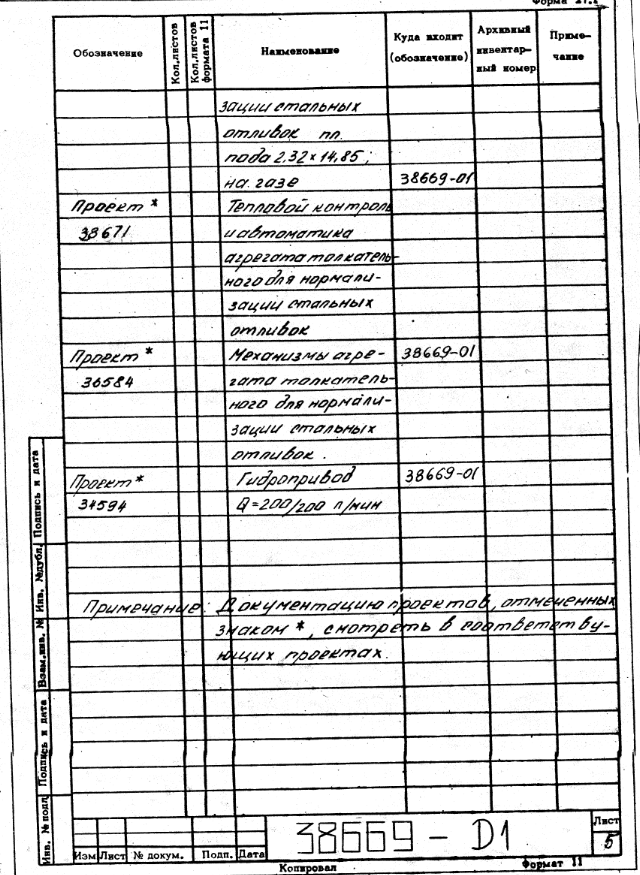 Обозначение Кол.листов Кол.листов формата 11 Наименование Куда входит (обозначение) Архивный инвентарный номер Примечание
зации стальных
отливок пл.
пода 2.32×14,85;
на газе 38669-01
Проект* Тепловой контроль
38671 и автоматика
агрегата толкатель-
ного для нормали-
зации стальных
отливок
Проект* Механизмы агре- 38669-01
36584 гата толкатель-
ного для нормали-
зации стальных
отливок.
Проект* Гидропривод 38669-01
34594 Q=200/200 л/мин
Примечание: Документацию проектов, отмеченных
знаком *, смотреть в соответству-
ющих проектах.
Инв. № подл Подпись и дата Взам.инв. № Инв. №дубл. Подпись и дата
38669 - D1
Лист
5
Изм Лист № докум. Подп. Дата
Копировал Формат 11